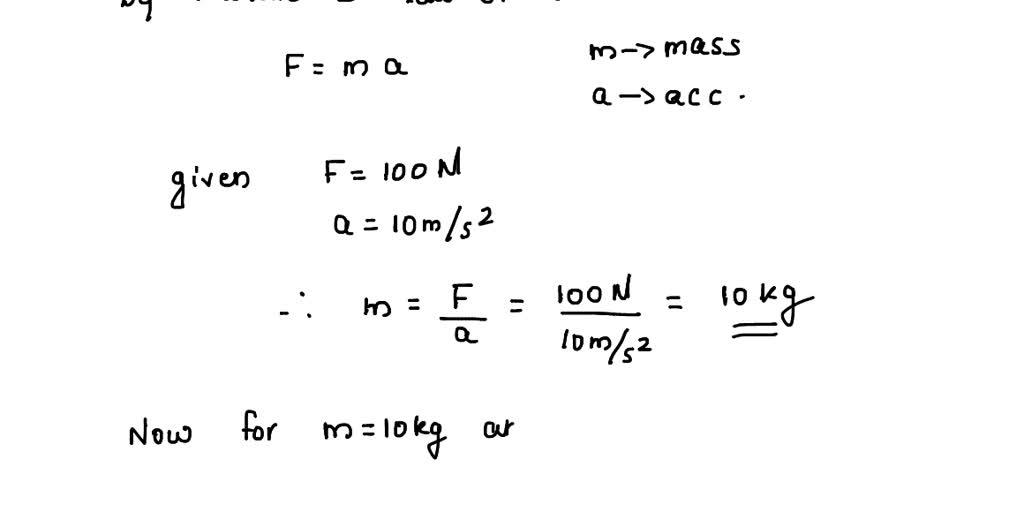 by
F = m a
m → mass
a → acc .
given F = 100 N
a = 10 m/s²
∴ m = F/a = 100 N / 10 m/s² = 10 kg
Now for m = 10 kg